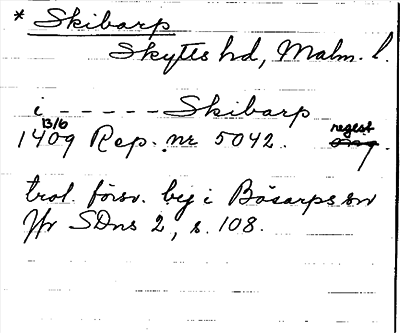 * Skibarp
Skytts hd, Malm. l.
i - - - - - Skibarp
13/6
1409 Rep. nr 5042. regest
trol. försv. by i Bösarps sn
Jfr SDns 2, s. 108.